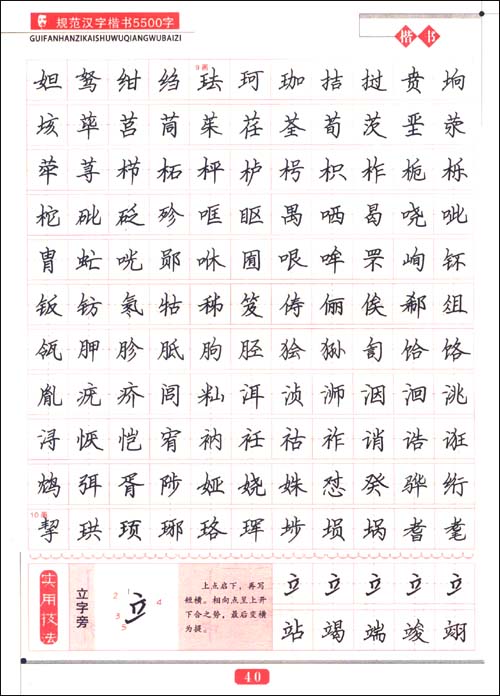 规范汉字楷书5500字
GUIFANHANZIKAISHUWUQIANGWUBAIZI
楷书
9画
妲 驽 绀 绉 珐 珂 珈 拮 挝 贲 垧
垓 荜 莒 茼 茱 荏 荃 荀 茨 垩 荥
荦 荨 栉 柘 枰 栌 枵 枳 柞 栀 栎
柁 砒 砭 殄 哐 眍 禺 哂 曷 哓 呲
胄 虻 咣 郧 咻 囿 哏 哞 罘 峋 钚
钣 钫 氡 牯 秭 笈 俦 俪 俟 郗 俎
瓴 胛 胗 胝 朐 胫 狯 狲 訇 饸 饹
胤 疣 疥 闾 籼 洱 浈 浉 洇 洄 洮
浔 恹 恺 宥 衲 衽 祜 祚 诮 诰 诳
鸩 弭 胥 陟 娅 娆 姝 怼 癸 骅 绗
10画
挈 珙 顼 琊 珞 珲 埗 埙 埚 耆 耄
实用技法
立字旁
1 2 3 4 5
立
上点启下，再写
短横。相向点呈上开
下合之势，最后变横
为提。
立 立 立 立 立
站 竭 端 竣 翊
40